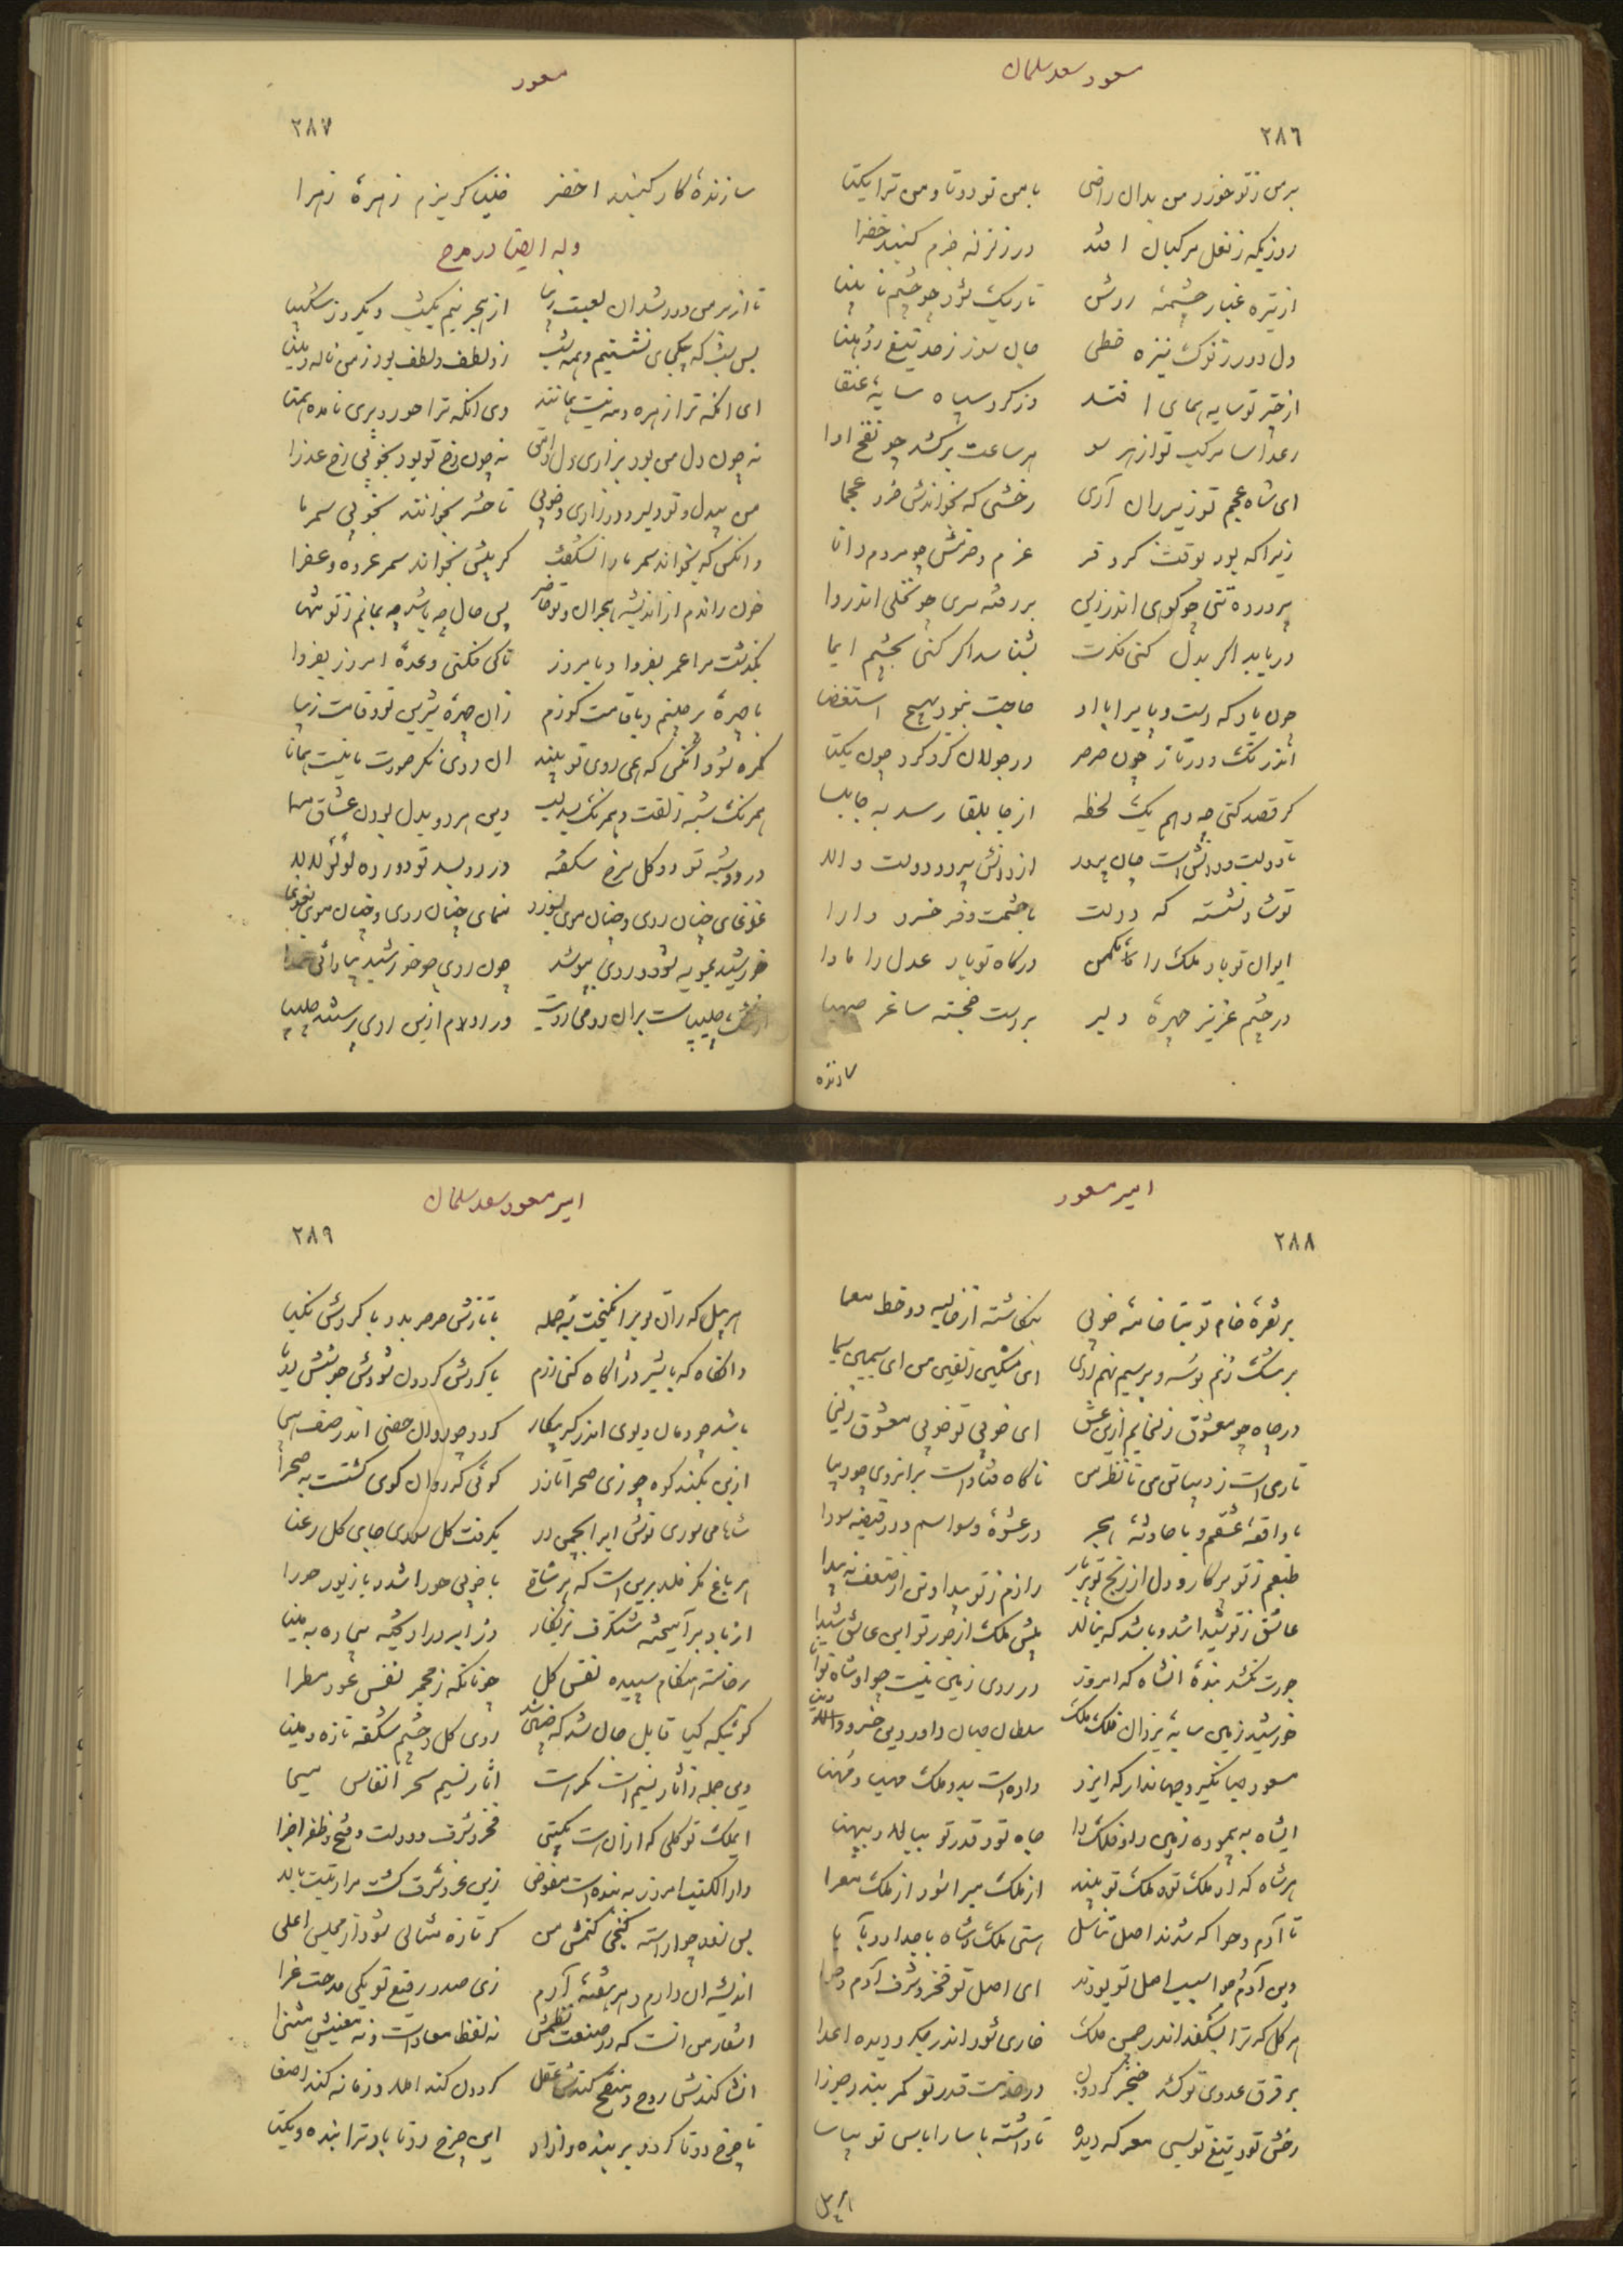 مسعود سعد سلمان
٢٨٦
بر من ز تو خورد من بدان راضی با من تو دوتا و من ترا یکتا
روزیکه ز نعل مرکبان افتد در زلزله جرم کنبد خضرا
از تیره غبار چشمهٔ روشن تاریک شود چو چشم نابینا
دل دوزد نوک نیزه خطی جان سوزد حد تیغ روهینا
از چتر تو سایه همای افتد وز کرد سپاه سایهٔ عنقا
رعد آسا مرکب تو از هر سو هر ساعت برکشد چو تفخ اوا
ای شاه عجم تو زیر ران آری رخشی که نخواندش خرد عجما
زیرا که بود بوقت کر و فر عزم و حزمش چو مردم دانا
پرورده تنی چو کوه اندر زین بر رفته سری چو نخلی اندروا
دریابد اگر بدل کنی فکرت بشناسد اگر کنی بچشم ایما
چون باد که دست و پا بر او حاجت نبود بهیچ استقصا
اندر تک دور تاز چون صرصر در جولان کرد کرد چون نکبا
کر قصد کنی چو وهم یک لحظه از جابلقا رسد به جابلسا
تا دولت و دانش است جان پرور از دانش پیر و دولت والا
تو شاد نشسته که دولت با حشمت و فر خسرو دارا
ایوان تو باد ملک را مکمن درکاه تو باد عدل را ماوا
در چشم عزیز چهرهٔ دلبر بر دست خجسته ساغر صهبا
سازنده
مسعود
٢٨٧
سازندهٔ کار کنبد اخضر خنیاکر بزم زهرهٔ زهرا
وله ایضا در مدح
تا از بر من دور شد ان لعبت زیبا از هجر نیم یکشب و یکروز شکیبا
بس شب که بیکجای نشستیم و همه شب زو لطف و لطف بود ز من ناله و نینا
ای انکه ترا زهره و مه نیست بمانند وی انکه ترا حور و پری نامده همتا
نه چون دل من بود بزاری دل وامق نه چون رخ تو بود بخوبی رخ عذرا
من بیدل و تو دلبر و در زاری و خوبی تا حشر بخوانند بخوبی سمر ما
وانکس که بخواند سمر ما را نشکفت کر پیش نخواند سمر عروه و عفرا
خون راندم از اندیشه هجران و تو حاضر پس حال چه باشد چه بمانم ز تو تنها
بگذشت مرا عمر بفردا و بامروز تا کی فکنی وعدهٔ امروز بفردا
با چهرهٔ پر چینم و با قامت کوزم زان چهرهٔ شیرین تو و قامت زیبا
کمره شود انکس که همی روی تو بیند ان روی نکر صورت ما نیست همانا
همرنک شبه زلفت و همرنک بسد لب وین هر دو بدل بودن عشاق مهنا
در دو شبه تو دو کل سرخ شکفته در دو بسد تو دو رده لؤلؤ لالا
غوغای چنان روی و چنان موی بسوزد منمای چنان روی و چنان موی بغوغا
خورشید نمویه شود و روی بپوشد چون روی چو خورشید بیارائی عمدا
صلیبست بران رومی رویت ور دو لام ازین روی پرستند چلیپا
امیر مسعود
٢٨٨
بر نقرهٔ خام تو بتا خامهٔ خوبی بنکاشته از غالیه دو خط معما
بر مشک زنم بوسه و بر سیم نهم روی ای مشکین زلفین من ای سیمین سیما
در چاه چو معشوق زلیخایم ازین عشق ای خوبی تو خوبی معشوق زلیخا
تا کاه فتاد است بر انروی چو دیبا
با واقعهٔ عشقم و با حادثهٔ هجر در عشوهٔ وسواسم و در قبضهٔ سودا
طبعم ز تو پرکار و دل از رنج تو پر بار رازم ز تو پیدا و تن از ضعف نه پیدا
عاشق ز تو شیدا شد و باشد که بنالد پیش ملک از جور تو این عاشق شیدا
جورت نکشد بندهٔ انشاه که امروز در روی زمین نیست چو او شاه توانا
خورشید زمین سایهٔ یزدان فلک ملک سلطان جهان داور دین خسرو والا
مسعود جهانگیر و جهاندار که ایزد داده است بدو ملک مهیا و مهنا
ایشاه به پیموده زمین و فلک را جاه تو و قدر تو ببالا و بپهنا
هر شاه که او ملک تو و ملک تو بیند از ملک مبرا شود از ملک معرا
تا آدم و حوا که شدند اصل تناسل
وین آدم و حوا سبب اصل تو بودند ای اصل تو فخر و شرف آدم و حوا
هر کل که ترا بشکفد اندر چمن ملک خاری شود اندر جکر و دیده اعدا
بر فرق عدوی تو کشد خنجر کردون در خدمت قدر تو کمر بندد جوزا
رخش تو و تیغ تو بسی معرکه دیده ناداشته باسا را باس تو بپاسا
هر پیل
امیر مسعود سعد سلمان
٢٨٩
هر پیل که ران تو برانکیخت به حمله با تازش صرصر بد و با کردش نکبا
وانکاه که با شیر دژاکاه کنی رزم با کردش کردون شودش جوشش دریا
باشد چو دمان دیوی اندر که پیکار کردد چو روان حصنی اندر صف هیجا
ازین بکند کوه چو زی صحرا تازد کوئی که روان کوهی کشتست به صحرا
شاها می سوری نوش ایرا بچمن در بکرفت کل سوری جای کل رعنا
هر باغ مکر خلد برین است که هر شاخ با خوبی حورا شد و با زیور حورا
از باد برآمیخته شنکرف بزنکار وز ابر درآویخته بیجاده به مینا
برخاسته هنکام سپیده نفس کل چونانکه ز مجمر نفس عود مطرا
کوئیکه کیا قابل جان شد که چنین شد روی کل و چشم شکفه تازه و بینا
وین جمله ز آثار نسیم است مکر است آثار نسیم سحر انفاس مسیحا
ایملک تو کلی که ازان است کمیتی فخر و شرف و دولت و فتح و ظفر اجزا
دار الکتب امروز به بنده است مفوض زین عز و شرف کشت مرا رتبت والا
پس زود چو آراسته کنجی کنمش من کر تازه مثالی شود از مجلس اعلی
اندیشه ان دارم و هر هفتهٔ آرم زی صدر رفیع تو یکی مدحت غرا
اشعار من انست که در صنعت نظمش نه لفظ معاد است و نه معنیش مثنا
انشا کندش روح و منقح کندش عقل کردون کند املا و زمانه کند اصغا
تا چرخ دوتا کردد بر بنده و آزاد این چرخ دوتا باد ترا بنده و یکتا